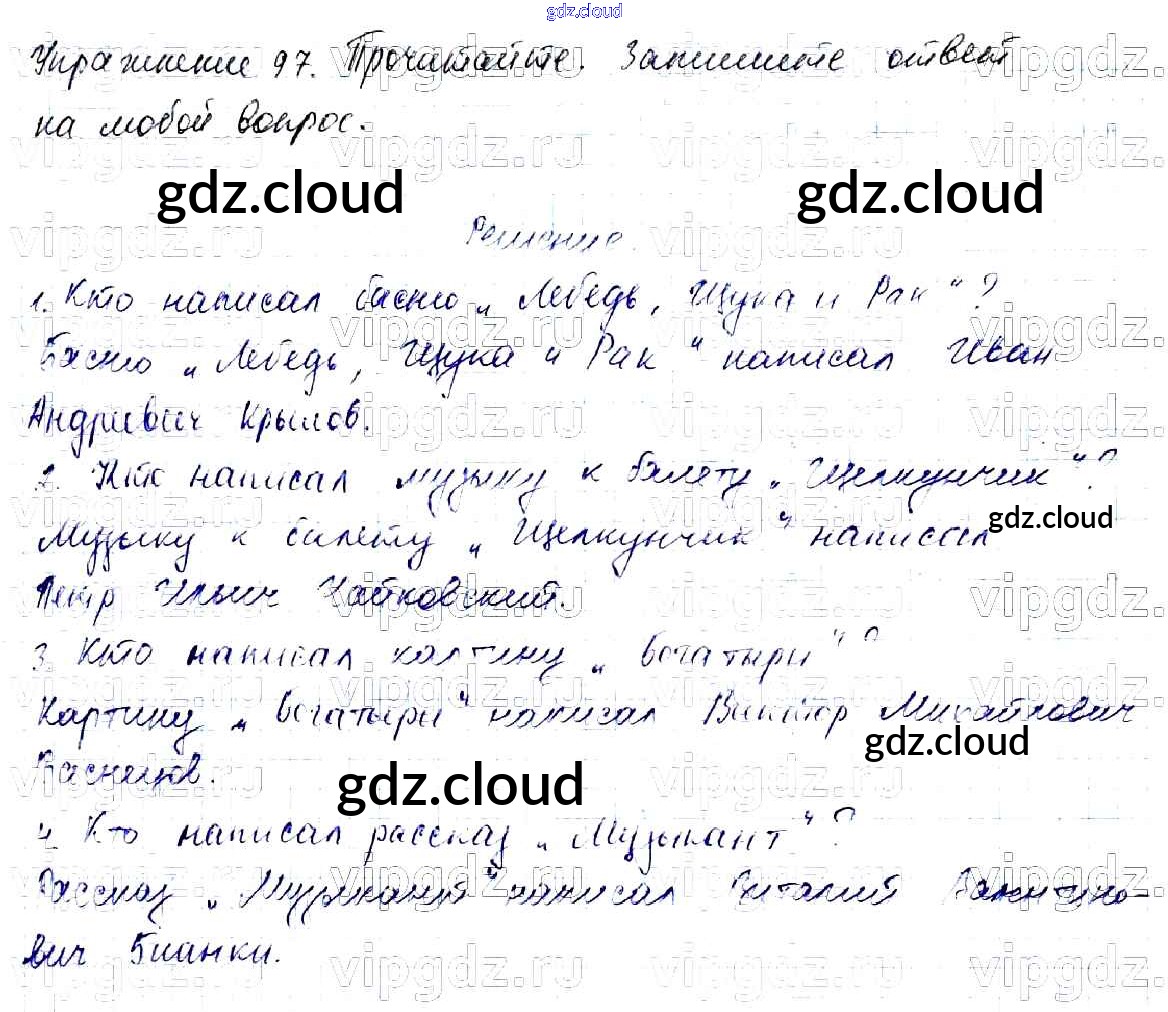 gdz.cloud
Упражнение 97. Прочитайте. Запишите ответ
на любой вопрос.
gdz.cloud gdz.cloud
Решение.
1. Кто написал басню „Лебедь, Щука и Рак“?
Басню „Лебедь, Щука и Рак“ написал Иван
Андреевич Крылов.
2. Кто написал музыку к балету „Щелкунчик“?
gdz.cloud
Музыку к балету „Щелкунчик“ написал
Петр Ильич Чайковский.
3. Кто написал картину „Богатыри“?
Картину „Богатыри“ написал Виктор Михайлович
gdz.cloud
Васнецов.
gdz.cloud
4. Кто написал рассказ „Музыкант“?
Рассказ „Музыкант“ написал Виталий Валентино-
вич Бианки.
vipgdz.ru